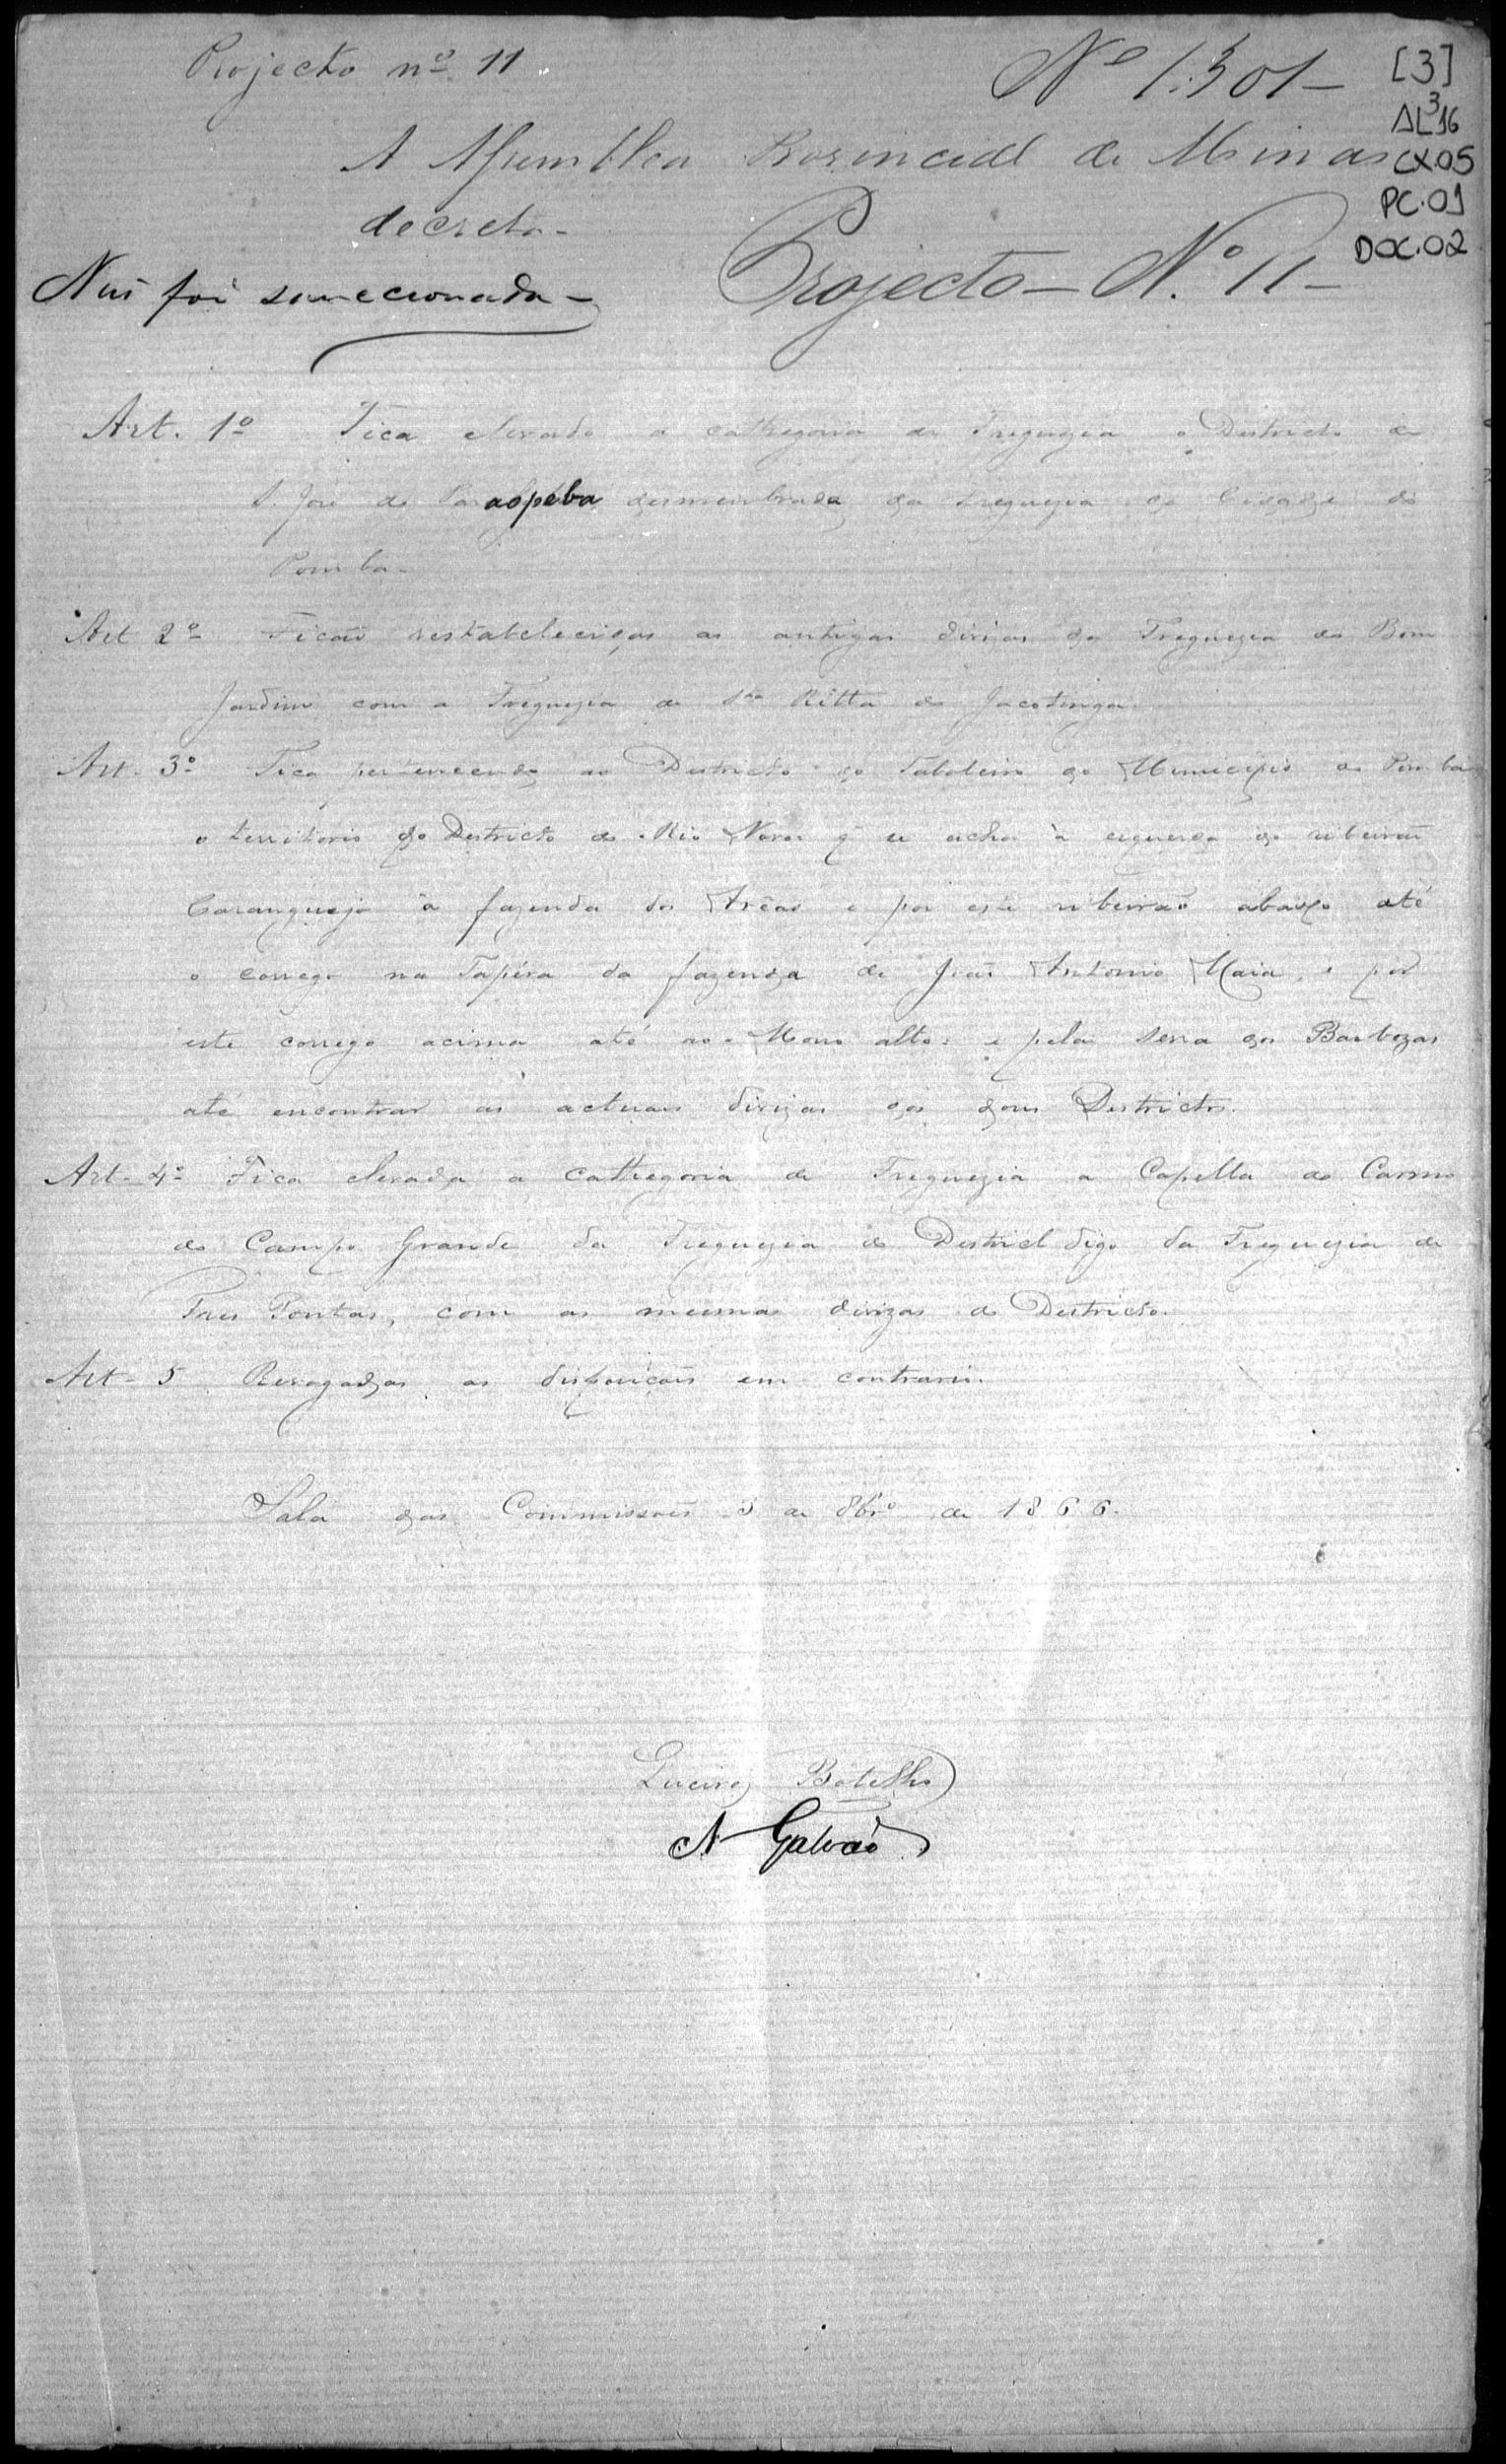 Projecto nº 11
Nº 1301-
[3]
AL 3 16
CX.05
PC.01
DOC.02
A Assemblea Provincial de Minas
decreta-
Projecto - N.º 11 -
Não foi sanccionada -
Art. 1º Fica elevado a cathegoria de Freguezia o Districto de
S. José do Paraopéba desmembrada da Freguezia da Cidade do
Pomba-
Art 2º Ficão restabelecidas as antigas divizas da Freguezia do Bom
Jardim com a Freguezia de Sta Ritta de Jacotinga.
Art. 3º Fica pertencendo ao Districto do Taboleiro do Municipio do Pomba
o territorio do Districto do Rio Novo q se acha à esquerda do ribeirão
Caranguejo à fazenda das Arêas e por este ribeirão abaixo até
o corrego na Tapéra da fazenda de João Antonio Maia, e por
este corrego acima até ao Morro alto: e pela serra dos Barbozas
até encontrar as actuais divizas dos dous Districtos.
Art. 4º Fica elevada a cathegoria de Freguezia a Capella do Carmo
do Campo Grande da Freguezia do District digo da Freguezia de
Tres Pontas, com as mesmas divizas do Districto.
Art- 5 Revogadas as disposicões em contrario.
Sala das Commissões 3 de 8brº de 1866.
Botelho
A Galvão